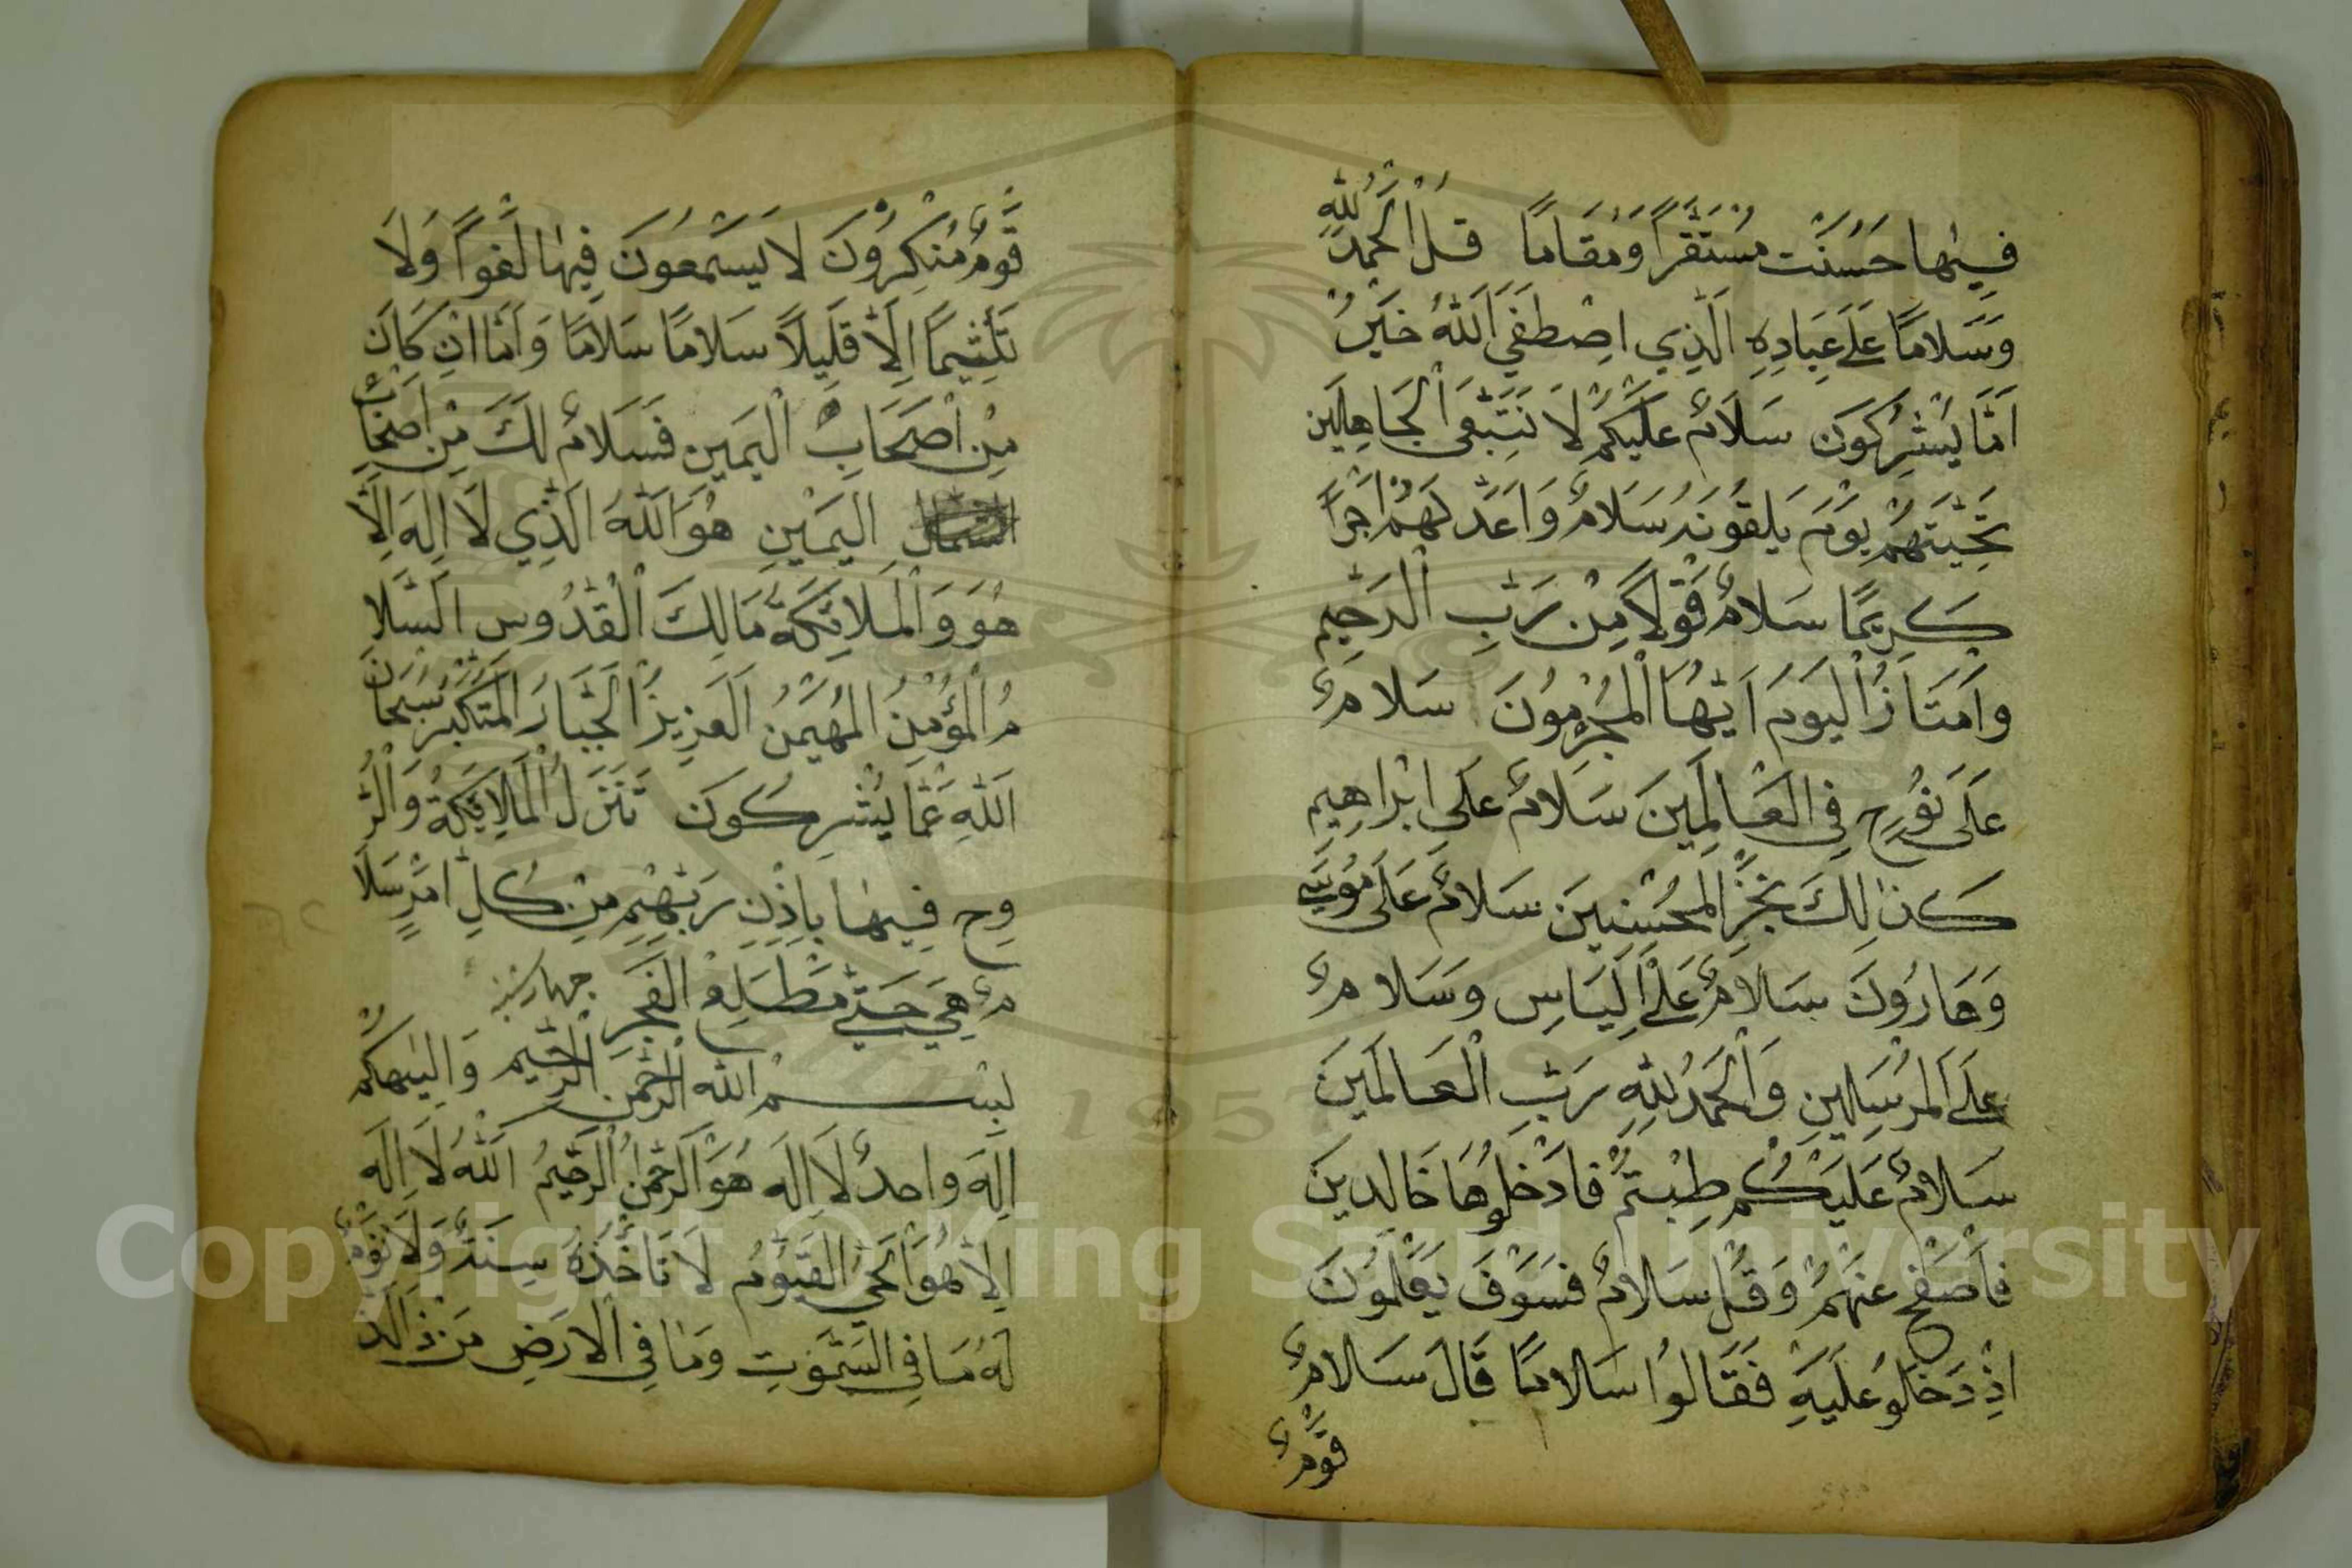 فِيهَا حَسُنَتْ مُسْتَقَرًّا وَمُقَامًا قُلْ الْحَمْدُ لِلّٰهِ
وَسَلَامًا عَلَى عِبَادِهِ الَّذِي اصْطَفَى اَللّٰهُ خَيْرٌ
اَمَّا يُشْرِكُونَ سَلَامٌ عَلَيْكُمْ لَا نَبْتَغِي الْجَاهِلِينَ
تَحِيَّتَهُمْ يَوْمَ يَلْقَوْنَهُ سَلَامٌ وَاَعَدَّ لَهُمْ اَجْرًا
كَرِيمًا سَلَامٌ قَوْلًا مِنْ رَبِّ الرَّحِيمِ
وَاَمْتَازُ الْيَوْمَ اَيُّهَا الْمُجْرِمُونَ سَلَامٌ
عَلَى نُوحٍ فِي الْعَالَمِينَ سَلَامٌ عَلَى اِبْرَاهِيمِ
كَذٰلِكَ نَجْزِ الْمُحْسِنِينَ سَلَامٌ عَلَى مُوسَى
وَهَارُونَ سَلَامٌ عَلَى اِلْيَاسِ وَسَلَامٌ
عَلَى الْمُرْسَلِينِ وَالْحَمْدُ لِلّٰهِ رَبِّ الْعَالَمِينَ
سَلَامٌ عَلَيْكُمْ طِبْتُمْ فَادْخُلُوهَا خَالِدِينَ
فَاصْفَحْ عَنْهُمْ وَقُلْ سَلَامٌ فَسَوْفَ يَعْلَمُونَ
اِذْ دَخَلُو عَلَيْهِ فَقَالُوا سَلَامًا قَالَ سَلَامٌ
قَوْمٌ
قَوْمٌ مُنْكِرُونَ لَا يَسْمَعُونَ فِيهَا لَغْوًا وَلَا
تَأْثِيمًا اِلَّا قَلِيلًا سَلَامًا سَلَامًا وَاَمَّا اِنْ كَانَ
مِنْ اَصْحَابِ الْيَمِينِ فَسَلَامٌ لَكَ مِنْ اَصْحَابِ
الشمال الْيَمِينِ هُوَ اللّٰهُ الَّذِي لَا اِلٰهَ اِلَّا
هُوَ وَالْمَلَائِكَةُ مَالِكَ الْقُدُّوسِ السَّلَا
مُ الْمُؤْمِنُ الْمُهَيْمِنُ الْعَزِيزُ الْجَبَّارُ الْمُتَكَبِّرُ سُبْحَانَ
اللّٰهِ عَمَّا يُشْرِكُونَ تَنَزَّلُ الْمَلَائِكَةُ وَالرُّ
وحِ فِيهَا بِاِذْنِ رَبِّهِمِ مِنْ كُلِّ اَمْرٍ سَلَا
مٌ هِيَ حَتَّى مَطْلَعِ الْفَجْرِ چهارشنبه
بِسْمِ اللّٰهِ الرَّحْمٰنِ الرَّحِيمِ وَاِلٰهُكُمْ
اِلٰهَ وَاحِدٌ لَا اِلٰهَ هُوَ الرَّحْمٰنُ الرَّحِيمُ اَللّٰهُ لَا اِلٰهَ
اِلَّا هُوَ الْحَيُّ الْقَيُّومُ لَا تَأْخُذُهُ سِنَةٌ وَلَا نَوْمٌ
لَهُ مَا فِي السَّمٰوٰتِ وَمَا فِي الْاَرْضِ مَنْ ذَالَّذ